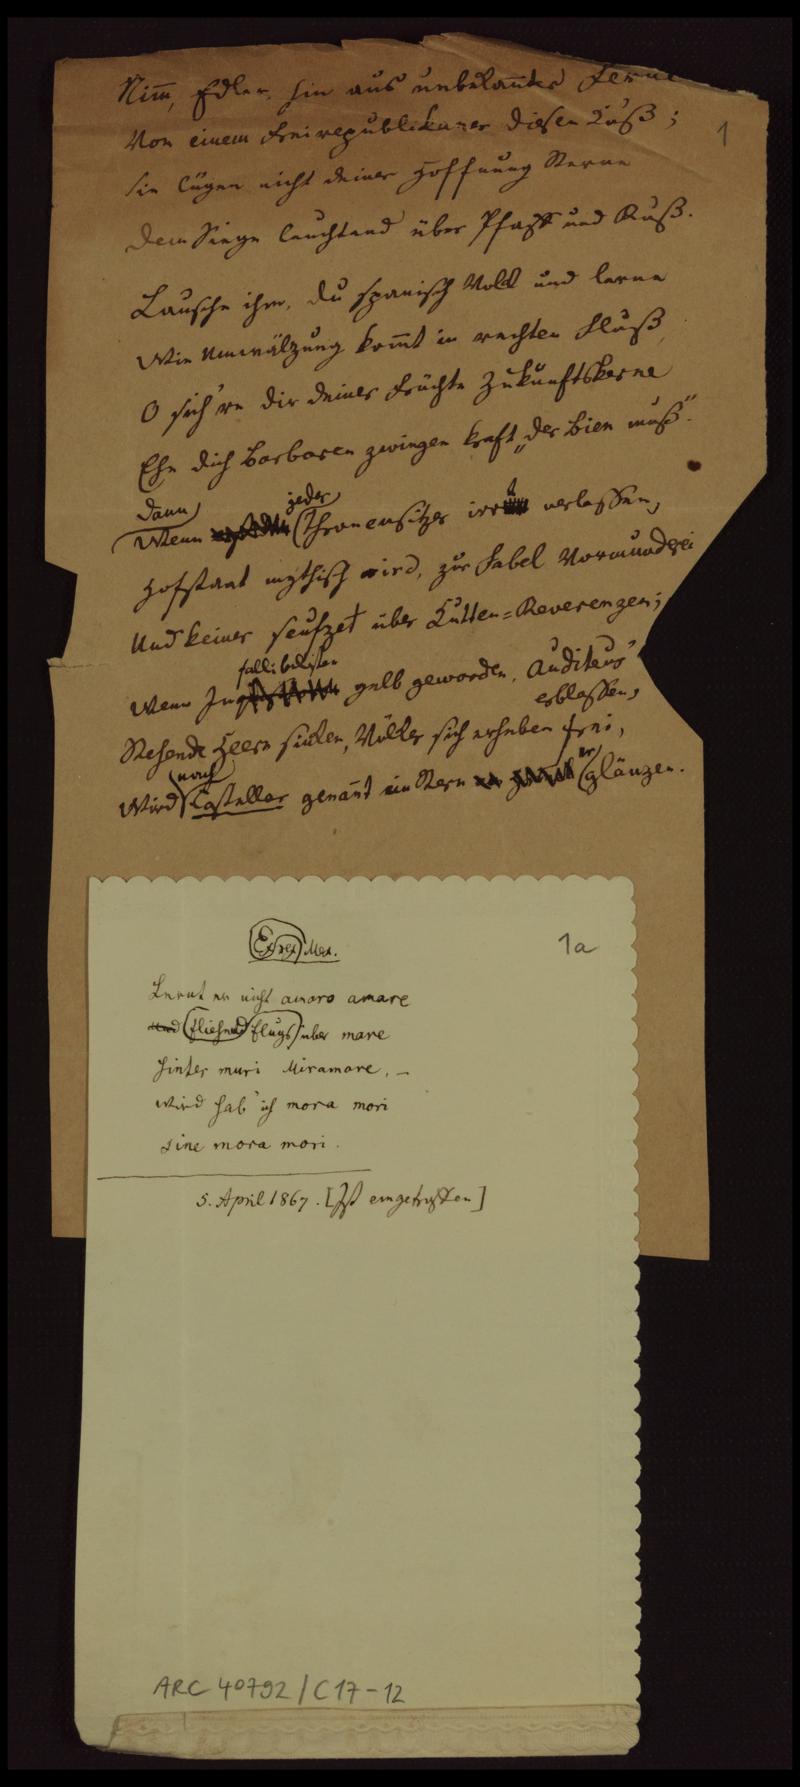 Nim̄, Edler, hin aus unbekan̄ter Ferne
Von einem Freirepublikaner diesen Kuß;
1
Sie lügen nicht deiner Hoffnung Sterne
Dem Siege leuchtend über Pfaff und Ruß.
Lausche ihm, du spanisch Volk und lerne
Wie Umwälzung kom̄t in rechten Fluß,
O sich're dir deiner Früchte Zukunftskerne
Ehe dich Barbaren zwingen kraft „der Bien muß".
Dann jeder
Wenn Thronensitzer irr verlassen,
Hofstaat mythisch wird, zur Fabel Vormunderei
Und keiner seufzet über Kutten=Reverenzen;
fallibilisten
Wenn In gelb geworden, Auditeur's
erblassen,
Stehende Heere sinken, Völker sich erheben frei,
noch er
Wird Castellar genan̄t ein Stern glänzen.
Exrex Mex.
1a
Lernt er nicht amaro amare
Und fliehend flugs über mare
Hinter muri Miramare, –
Wird hab' ich mora mori
sine mora mori.
5. April 1867. [Ist eingetroffen]
ARC 40792/C17-12